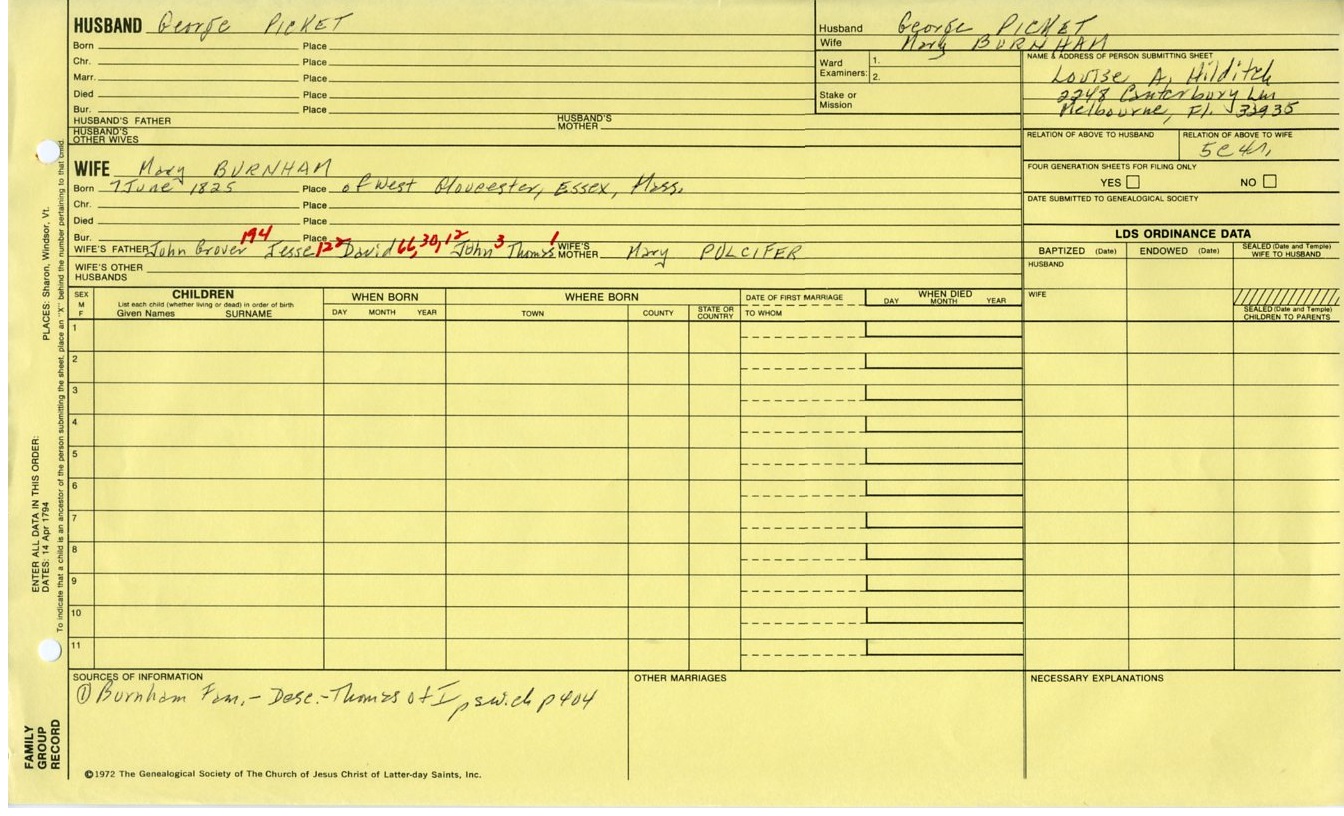 HUSBAND George PICKET
Born Place
Chr. Place
Marr. Place
Died Place
Bur. Place
HUSBAND'S FATHER HUSBAND'S MOTHER
HUSBAND'S OTHER WIVES
Husband George PICKET
Wife Mary BURNHAM
Ward Examiners: 1.
2.
Stake or Mission
NAME & ADDRESS OF PERSON SUBMITTING SHEET
Louise A. Hilditch
2248 Canterbury Ln
Melbourne, Fl. 32935
RELATION OF ABOVE TO HUSBAND RELATION OF ABOVE TO WIFE
5c4r,
FOUR GENERATION SHEETS FOR FILING ONLY
YES NO
DATE SUBMITTED TO GENEALOGICAL SOCIETY
WIFE Mary BURNHAM
Born 7 June 1825 Place of West Gloucester, Essex, Mass.
Chr. Place
Died Place
Bur. Place
WIFE'S FATHER John Grover 194 Jesse 122 David 66, 30, 12 John 3 Thomas 1 WIFE'S MOTHER Mary PULCIFER
WIFE'S OTHER HUSBANDS
LDS ORDINANCE DATA
BAPTIZED (Date) ENDOWED (Date) SEALED (Date and Temple) WIFE TO HUSBAND
HUSBAND
WIFE
SEALED (Date and Temple) CHILDREN TO PARENTS
SEX M F
CHILDREN
List each child (whether living or dead) in order of birth
Given Names SURNAME
WHEN BORN
DAY MONTH YEAR
WHERE BORN
TOWN COUNTY STATE OR COUNTRY
DATE OF FIRST MARRIAGE
TO WHOM
WHEN DIED
DAY MONTH YEAR
1
2
3
4
5
6
7
8
9
10
11
SOURCES OF INFORMATION
① Burnham Fam. - Desc. - Thomas of Ipswich p404
OTHER MARRIAGES
NECESSARY EXPLANATIONS
©1972 The Genealogical Society of The Church of Jesus Christ of Latter-day Saints, Inc.
FAMILY GROUP RECORD
ENTER ALL DATA IN THIS ORDER:
DATES: 14 Apr 1794 PLACES: Sharon, Windsor, Vt.
To indicate that a child is an ancestor of the person submitting the sheet, place an "X" behind the number pertaining to that child.